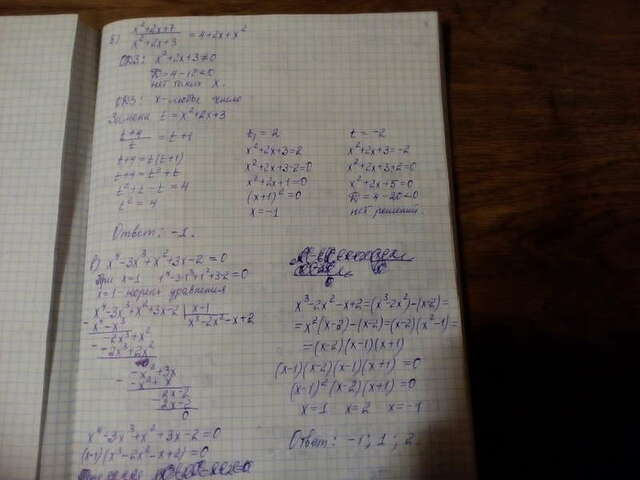 б) x²+2x+7 / x²+2x+3 = 4+2x+x²
ОДЗ: x²+2x+3≠0
D=4-12<0
нет таких x.
ОДЗ: x-любое число
Замена t=x²+2x+3
t+4 / t = t+1
t+4=t(t+1)
t+4=t²+t
t²+t-t=4
t²=4
t₁=2
x²+2x+3=2
x²+2x+3-2=0
x²+2x+1=0
(x+1)²=0
x=-1
t=-2
x²+2x+3=-2
x²+2x+3+2=0
x²+2x+5=0
D=4-20<0
нет решений.
Ответ: -1.
в) x⁴-3x³+x²+3x-2=0
При x=1 1⁴-3·1³+1²+3-2=0
x=1-корень уравнения
x⁴-3x³+x²+3x-2 | x-1
x⁴-x³ x³-2x²-x+2
-2x³+x²
-2x³+2x²
-x²+3x
-x²+x
2x-2
2x-2
0
x⁴-3x³+x²+3x-2=0
(x-1)(x³-2x²-x+2)=0
x³-2x²-x+2=(x³-2x²)-(x-2)=
=x²(x-2)-(x-2)=(x-2)(x²-1)=
=(x-2)(x-1)(x+1)
(x-1)(x-2)(x-1)(x+1)=0
(x-1)²(x-2)(x+1)=0
x=1 x=2 x=-1
Ответ: -1; 1; 2.